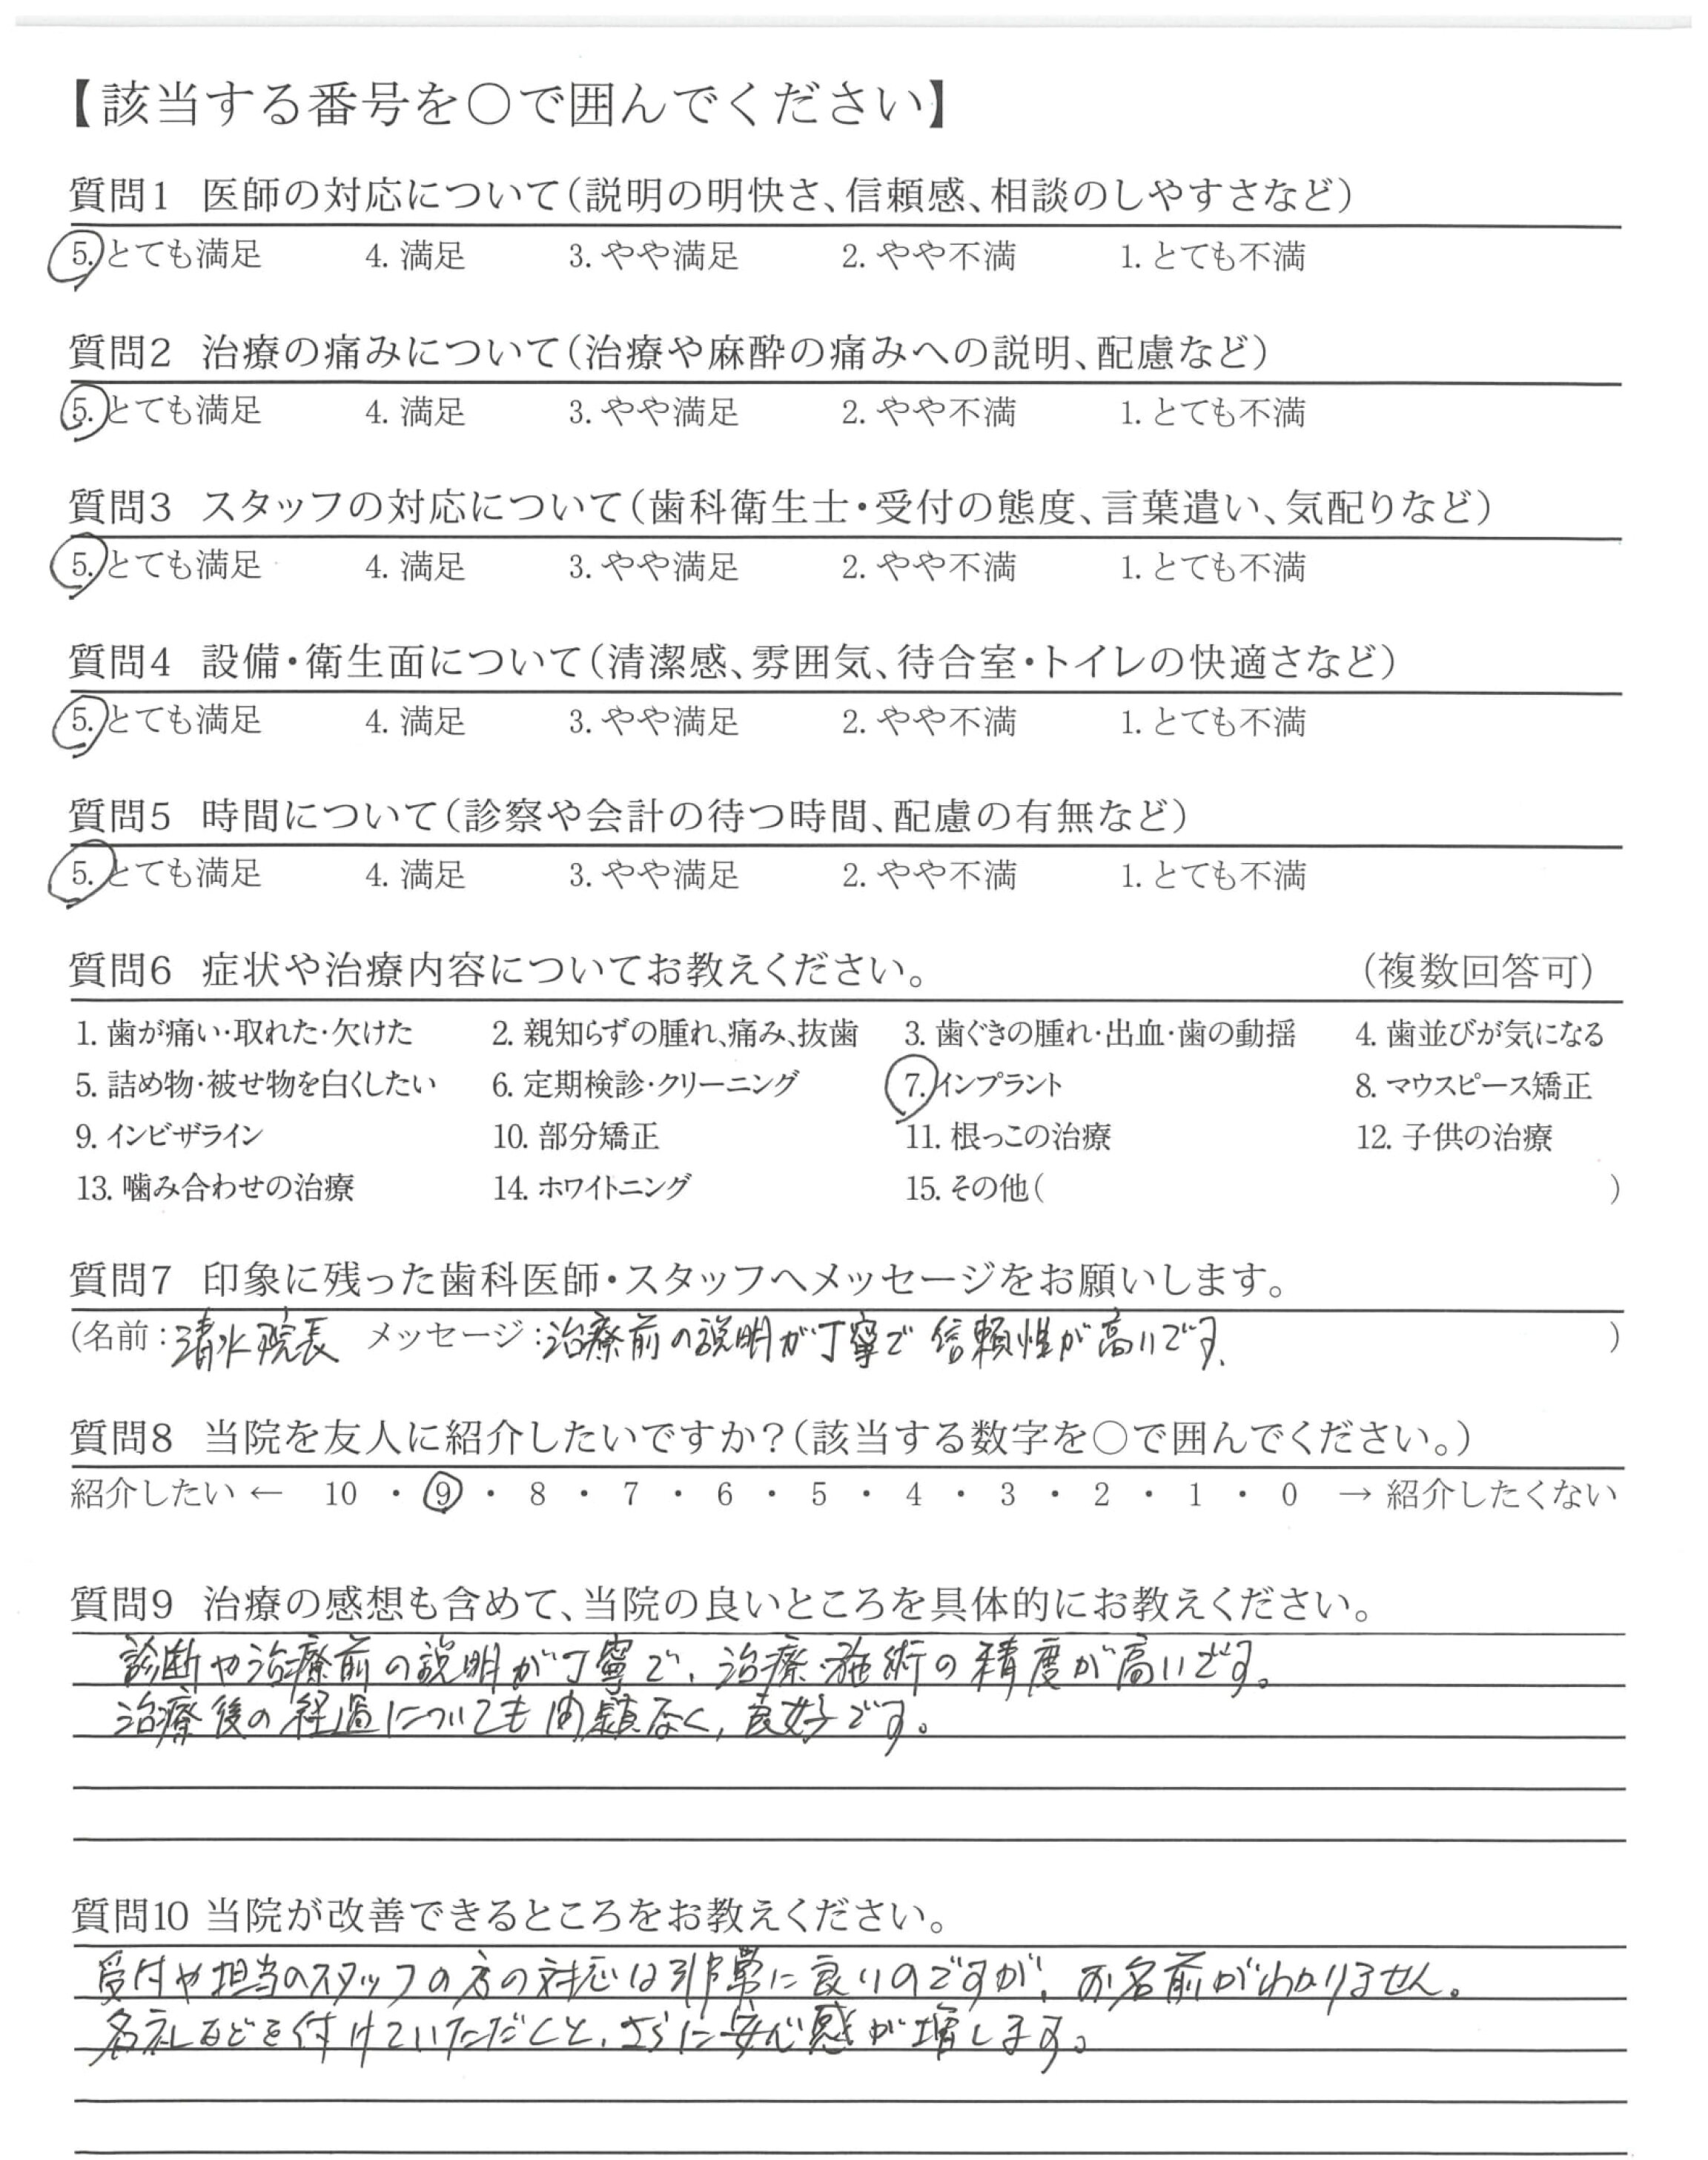 【該当する番号を○で囲んでください】
質問1 医師の対応について(説明の明快さ、信頼感、相談のしやすさなど)
5. とても満足 4. 満足 3. やや満足 2. やや不満 1. とても不満
質問2 治療の痛みについて(治療や麻酔の痛みへの説明、配慮など)
5. とても満足 4. 満足 3. やや満足 2. やや不満 1. とても不満
質問3 スタッフの対応について(歯科衛生士・受付の態度、言葉遣い、気配りなど)
5. とても満足 4. 満足 3. やや満足 2. やや不満 1. とても不満
質問4 設備・衛生面について(清潔感、雰囲気、待合室・トイレの快適さなど)
5. とても満足 4. 満足 3. やや満足 2. やや不満 1. とても不満
質問5 時間について(診察や会計の待つ時間、配慮の有無など)
5. とても満足 4. 満足 3. やや満足 2. やや不満 1. とても不満
質問6 症状や治療内容についてお教えください。 (複数回答可)
1. 歯が痛い・取れた・欠けた 2. 親知らずの腫れ、痛み、抜歯 3. 歯ぐきの腫れ・出血・歯の動揺 4. 歯並びが気になる
5. 詰め物・被せ物を白くしたい 6. 定期検診・クリーニング 7. インプラント 8. マウスピース矯正
9. インビザライン 10. 部分矯正 11. 根っこの治療 12. 子供の治療
13. 噛み合わせの治療 14. ホワイトニング 15. その他( )
質問7 印象に残った歯科医師・スタッフへメッセージをお願いします。
(名前:清水院長 メッセージ:治療前の説明が丁寧で信頼性が高いです。 )
質問8 当院を友人に紹介したいですか?(該当する数字を○で囲んでください。)
紹介したい ← 10 ・ 9 ・ 8 ・ 7 ・ 6 ・ 5 ・ 4 ・ 3 ・ 2 ・ 1 ・ 0 → 紹介したくない
質問9 治療の感想も含めて、当院の良いところを具体的にお教えください。
診断や治療前の説明が丁寧で、治療・施術の精度が高いです。
治療後の経過についても問題なく、良好です。
質問10 当院が改善できるところをお教えください。
受付や担当のスタッフの方の対応は非常に良いのですが、お名前がわかりません。
名札などを付けていただだくと、さらに安心感が増します。